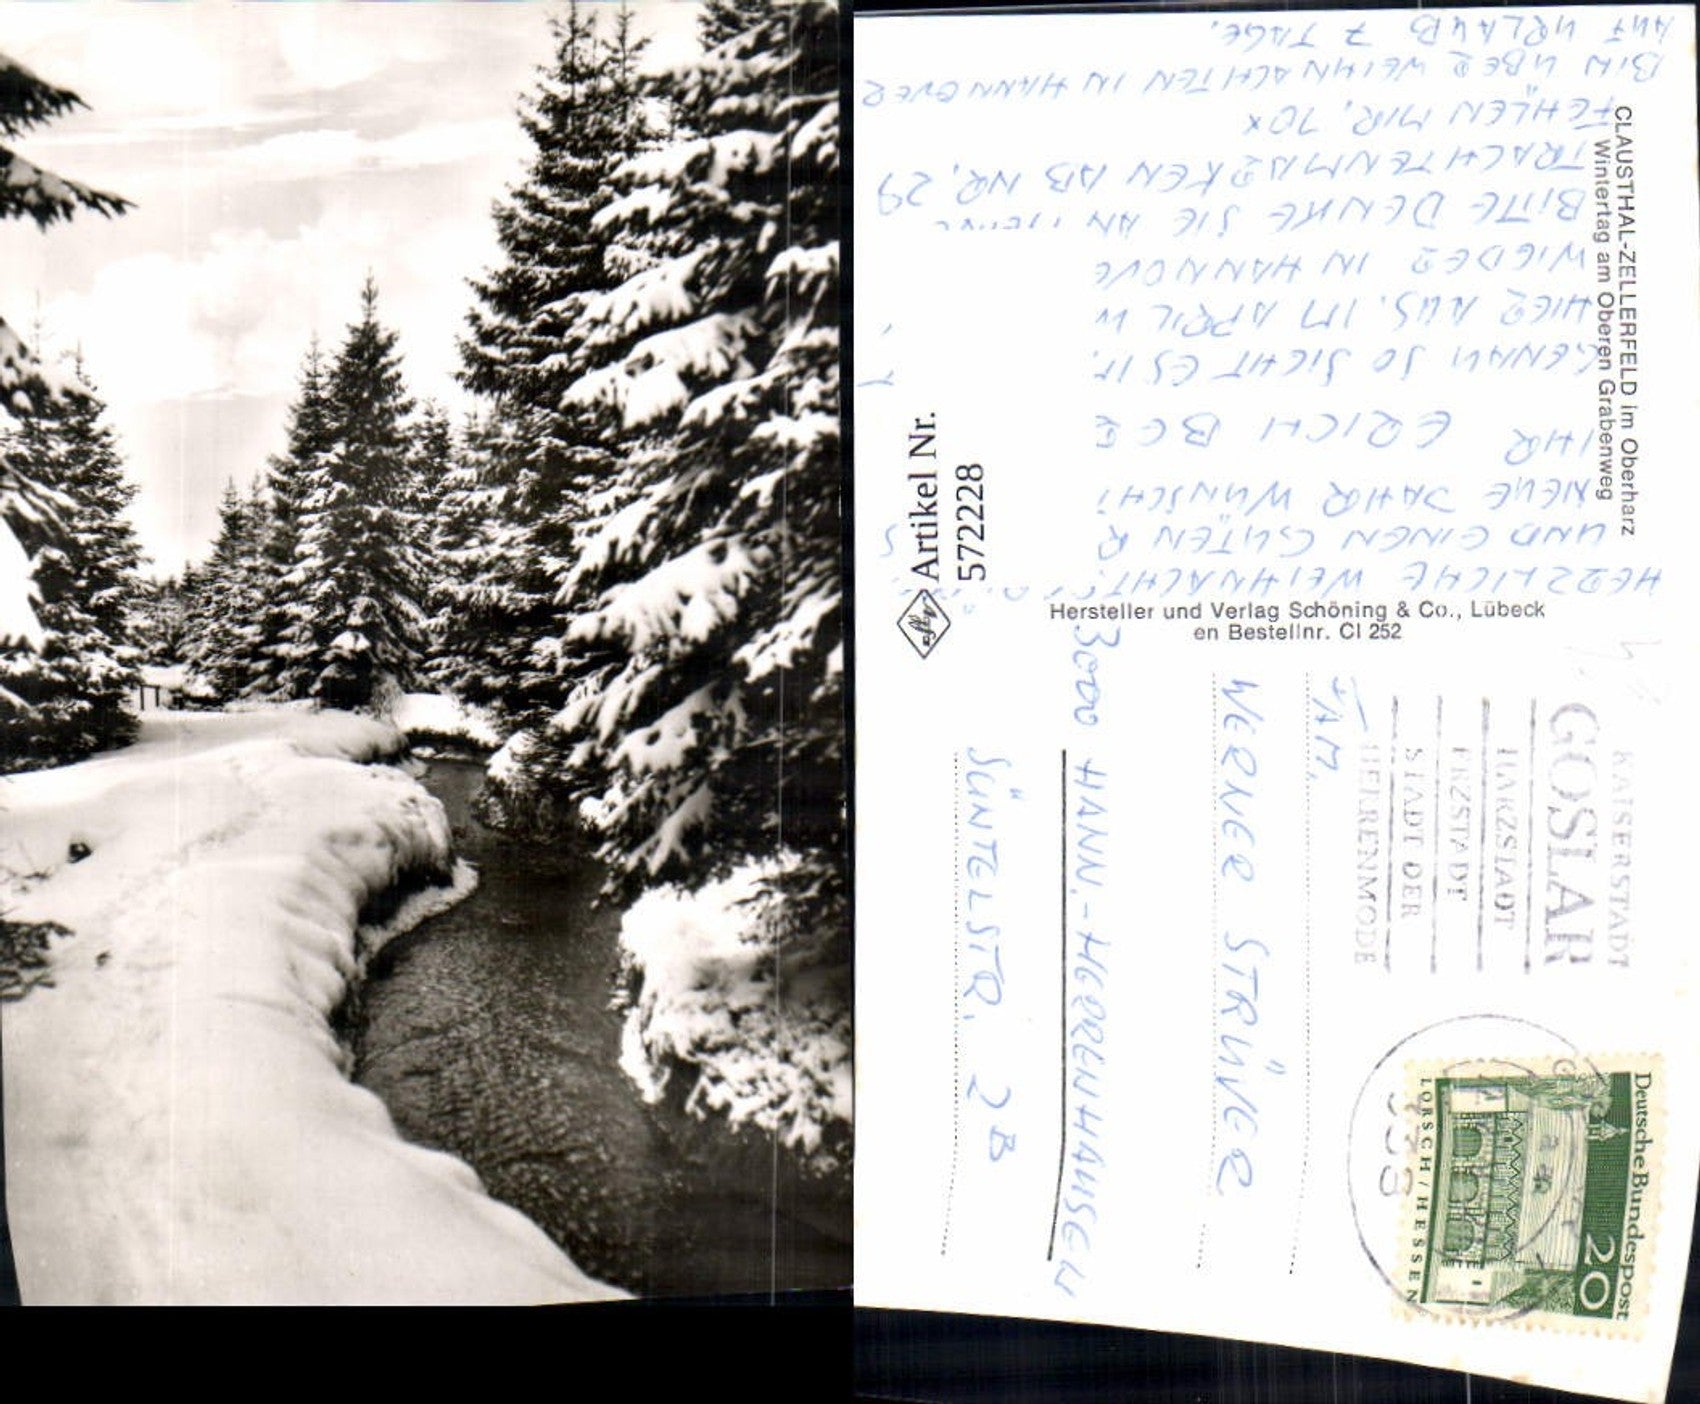 CLAUSTHAL-ZELLERFELD im Oberharz
Wintertag am Oberen Grabenweg
HERZLICHE WEIHNACHT
UND EINEN GUTEN R
NEUE JAHR WÜNSCH
IHR ERICH
GENAU SO SIEHT ES
HIER AUS. IM APRIL
WIEDER IN HANNOVE
BITTE DENKE SIE AN
TRACHTENMARKEN AB NR. 29
FEHLEN MIR. 10X
BIN ÜBER WEIHNACHTEN IN HANNOVER
AUF URLAUB 7 TAGE.
Artikel Nr.
572228
Agfa
Hersteller und Verlag Schöning & Co., Lübeck
en Bestellnr. Cl 252
KAISERSTADT
GOSLAR
HARZSTADT
ERZSTADT
STADT DER
HERRENMODE
Deutsche Bundespost
20
LORSCH/HESSEN
338
FAM.
WERNER STRÜVER
3000 HANN.-HERRENHAUSEN
SÜNTELSTR. 2B